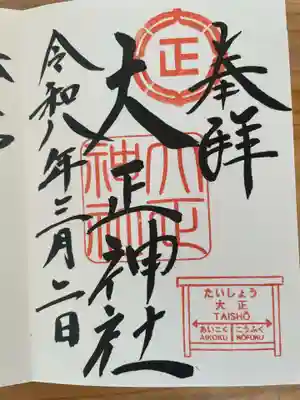 奉拝
正
大正神社
大正神社
令和八年三月二日
たいしょう
大正
TAISHŌ
あいこく
こうふく
AIKOKU
KŌFUKU